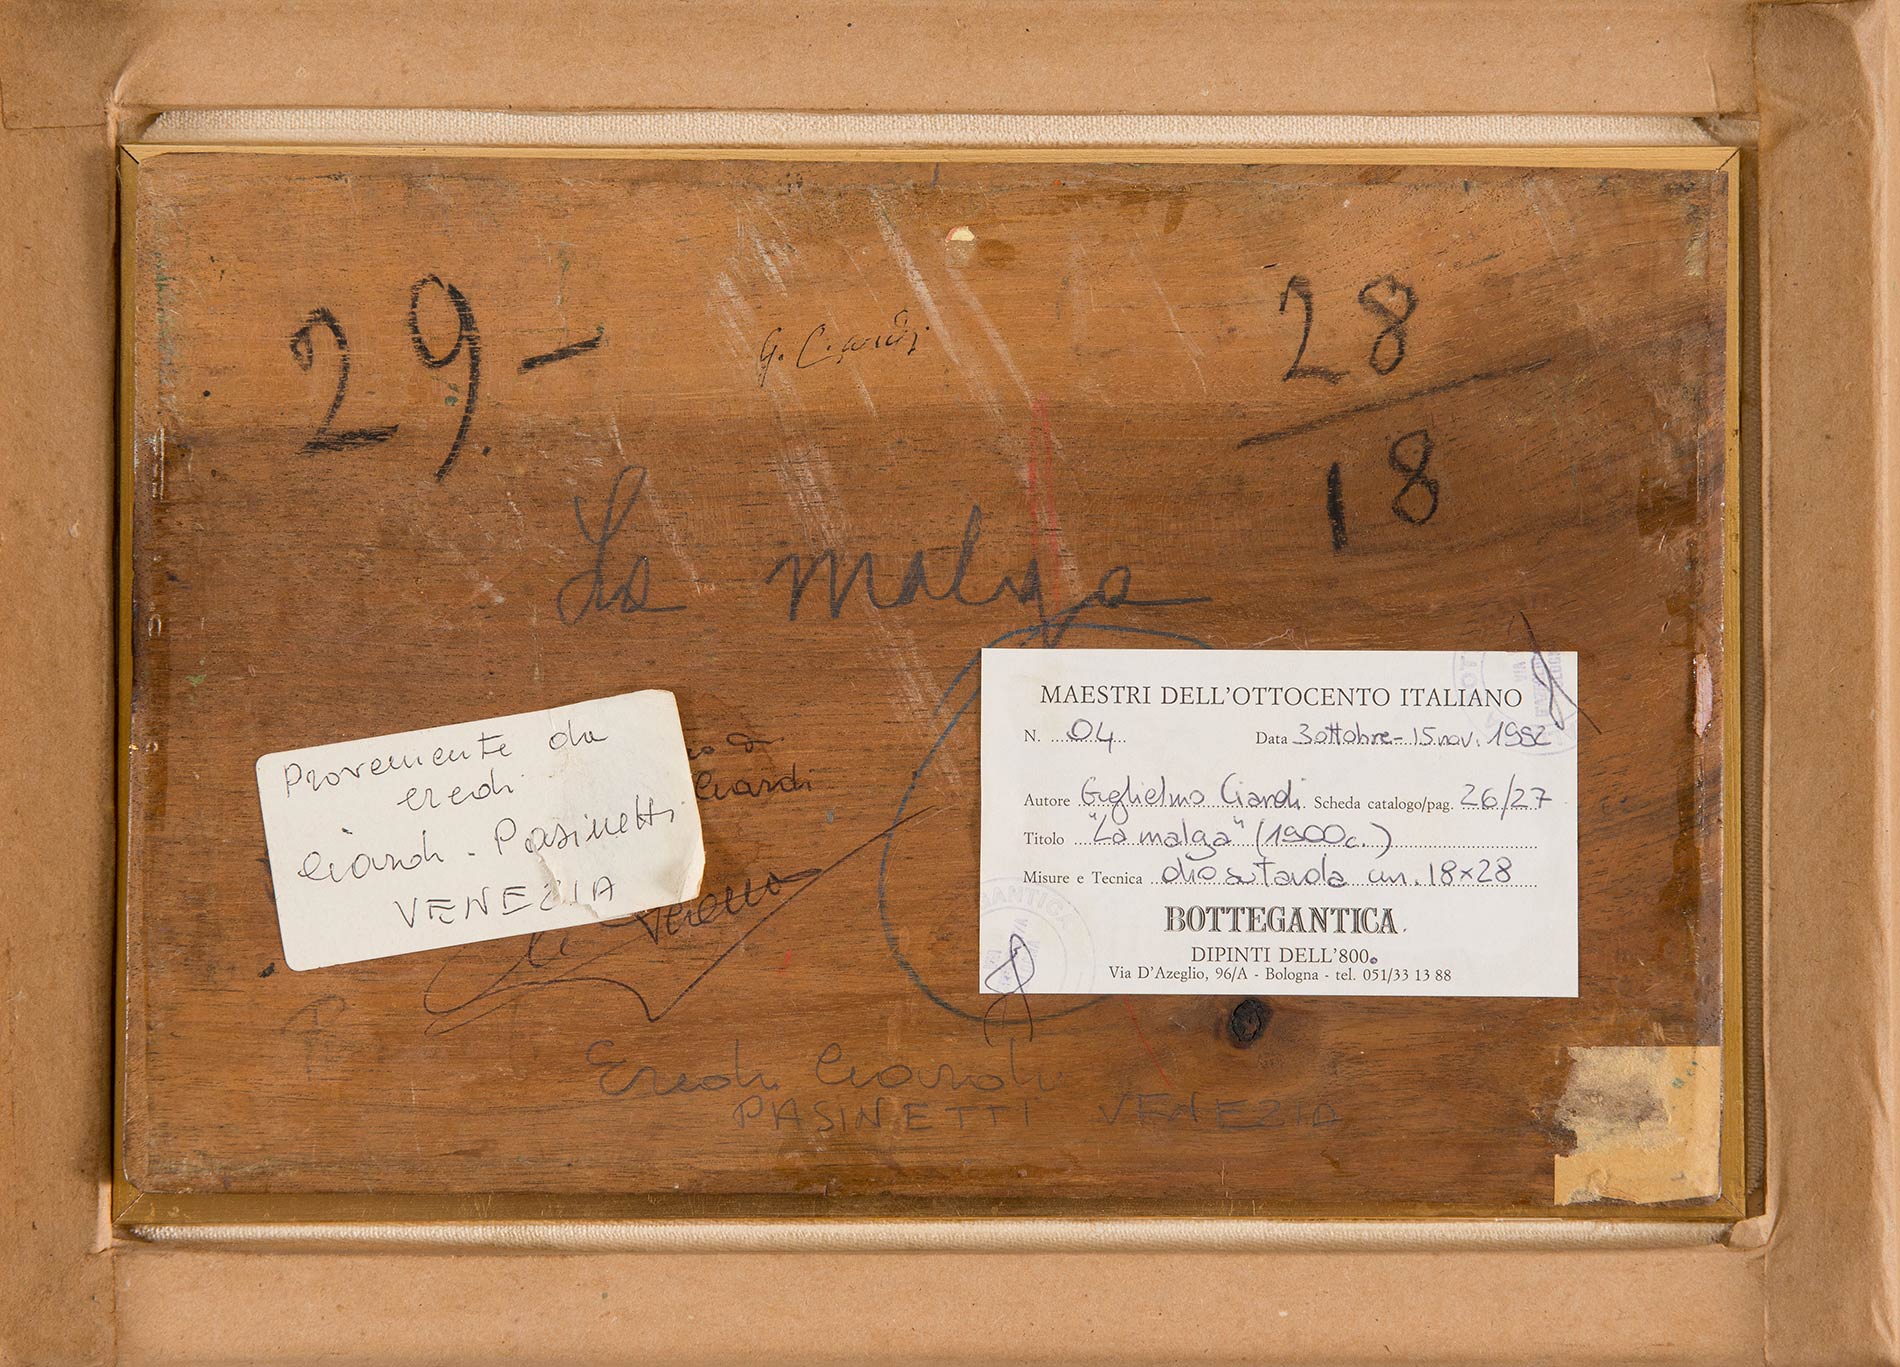 29.-
G. Ciardi
28
18
La malga
Proveniente da
eredi
Ciardi - Pasinetti
VENEZIA
di
Ciardi
MAESTRI DELL'OTTOCENTO ITALIANO
N. 04 Data 3 ottobre - 15 nov. 1982
Autore Guglielmo Ciardi Scheda catalogo/pag. 26/27
Titolo "La malga" (1900 c.)
Misure e Tecnica olio su tavola cm. 18x28
BOTTEGANTICA
DIPINTI DELL'800.
Via D'Azeglio, 96/A - Bologna - tel. 051/33 13 88
Eredi Ciardi
PASINETTI VENEZIA